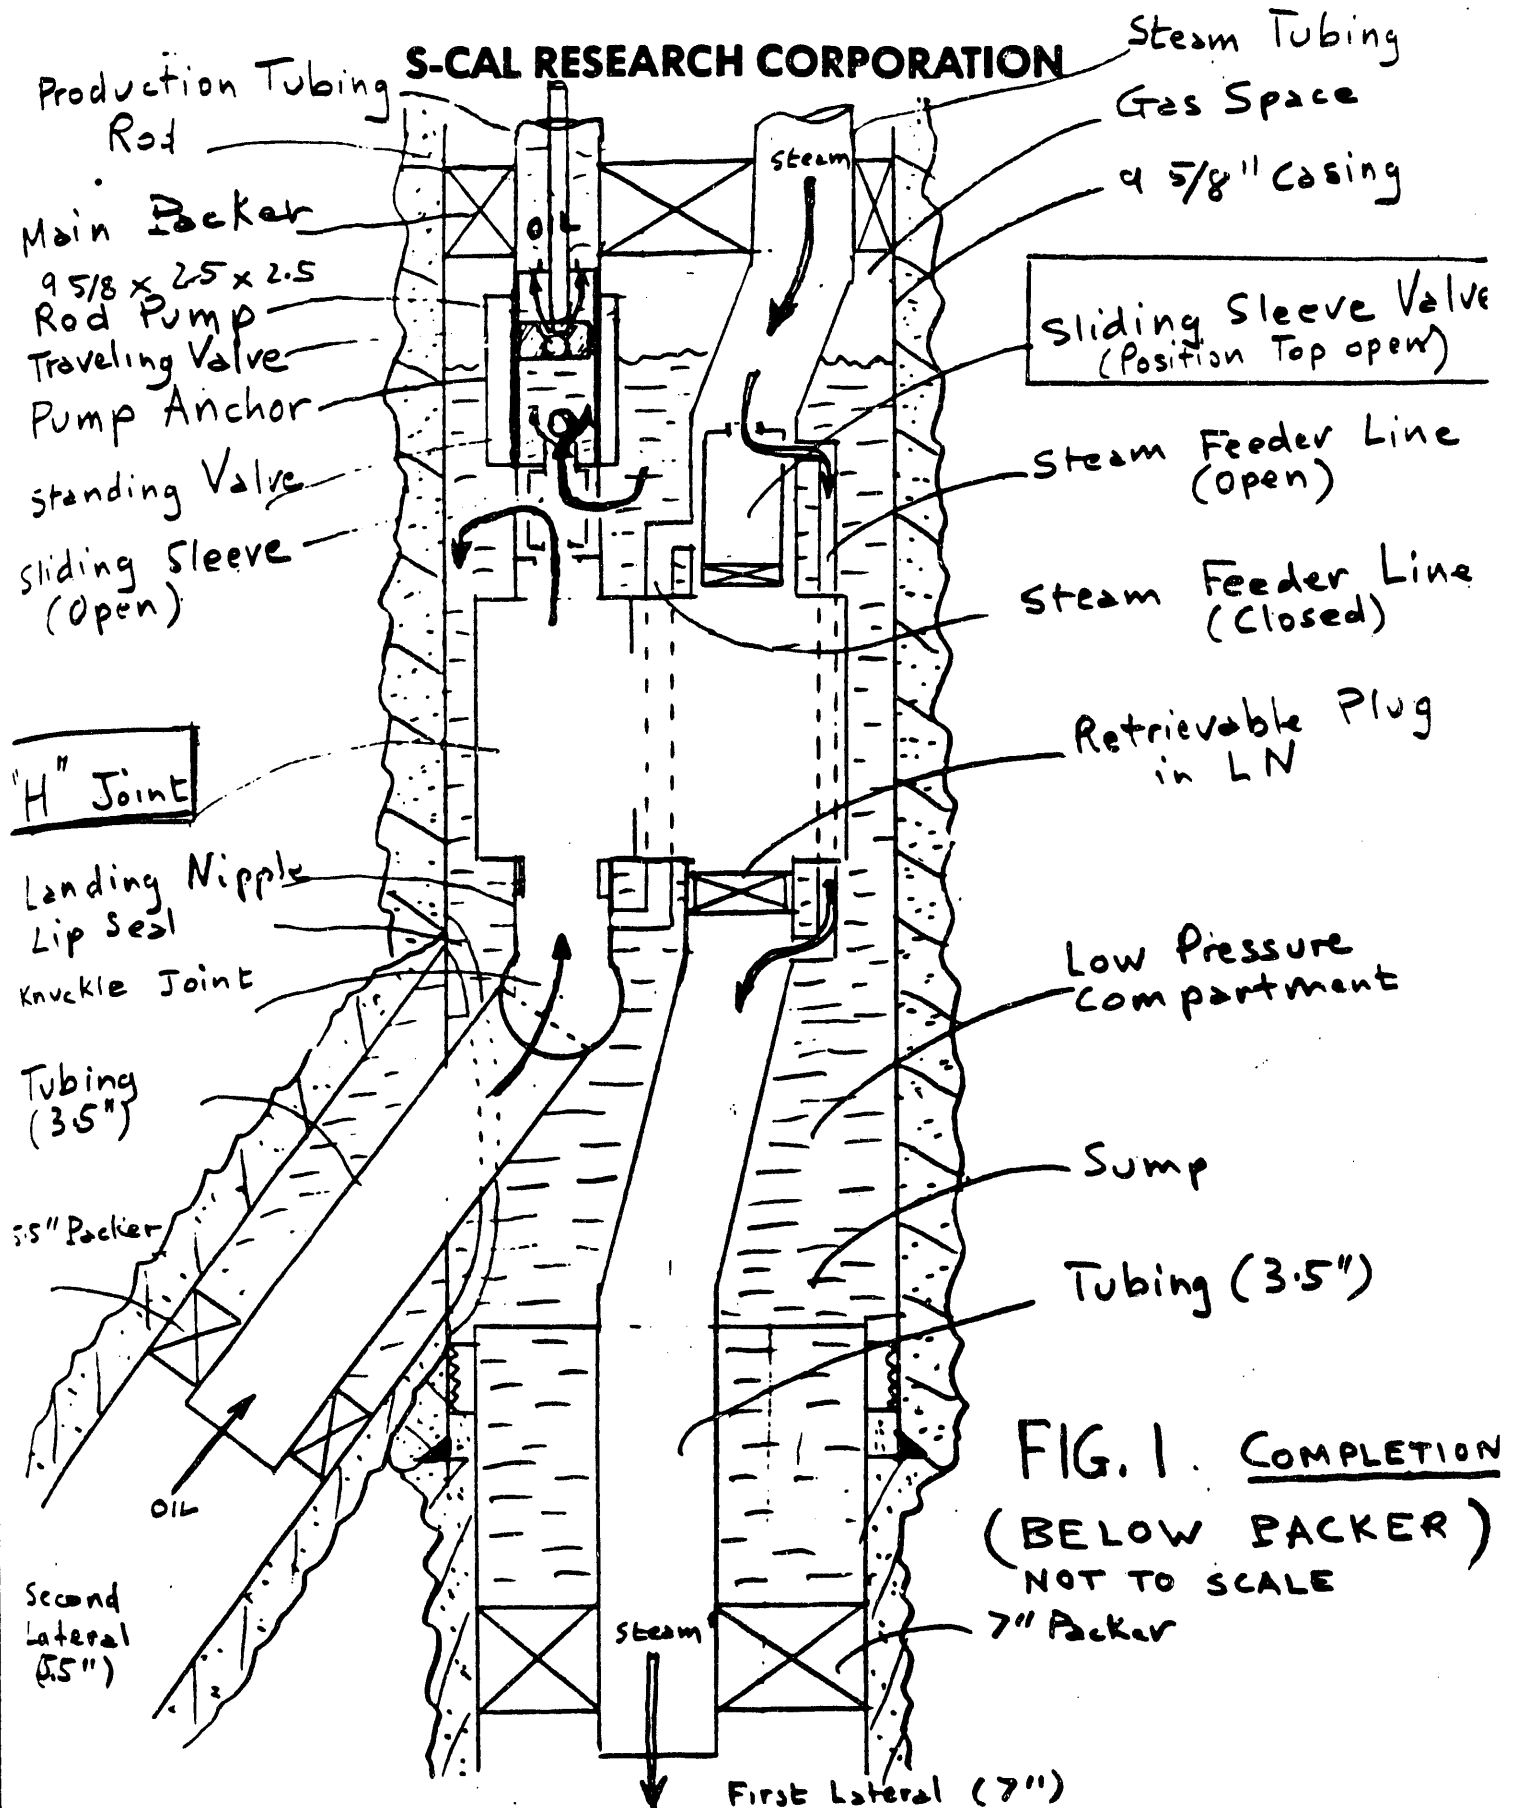 S-CAL RESEARCH CORPORATION
Production Tubing
Rod
Main Packer
9 5/8 x 2.5 x 2.5
Rod Pump
Traveling Valve
Pump Anchor
Standing Valve
Sliding Sleeve
(Open)
"H" Joint
Landing Nipple
Lip Seal
Knuckle Joint
Tubing
(3.5")
5.5" Packer
OIL
Second
Lateral
(5.5")
OIL
Steam
Steam Tubing
Gas Space
9 5/8" Casing
Sliding Sleeve Valve
(Position Top open)
Steam Feeder Line
(Open)
Steam Feeder Line
(Closed)
Retrievable Plug
in LN
Low Pressure
Compartment
Sump
Tubing (3.5")
FIG. 1. COMPLETION
(BELOW PACKER)
NOT TO SCALE
7" Packer
Steam
First Lateral (7")